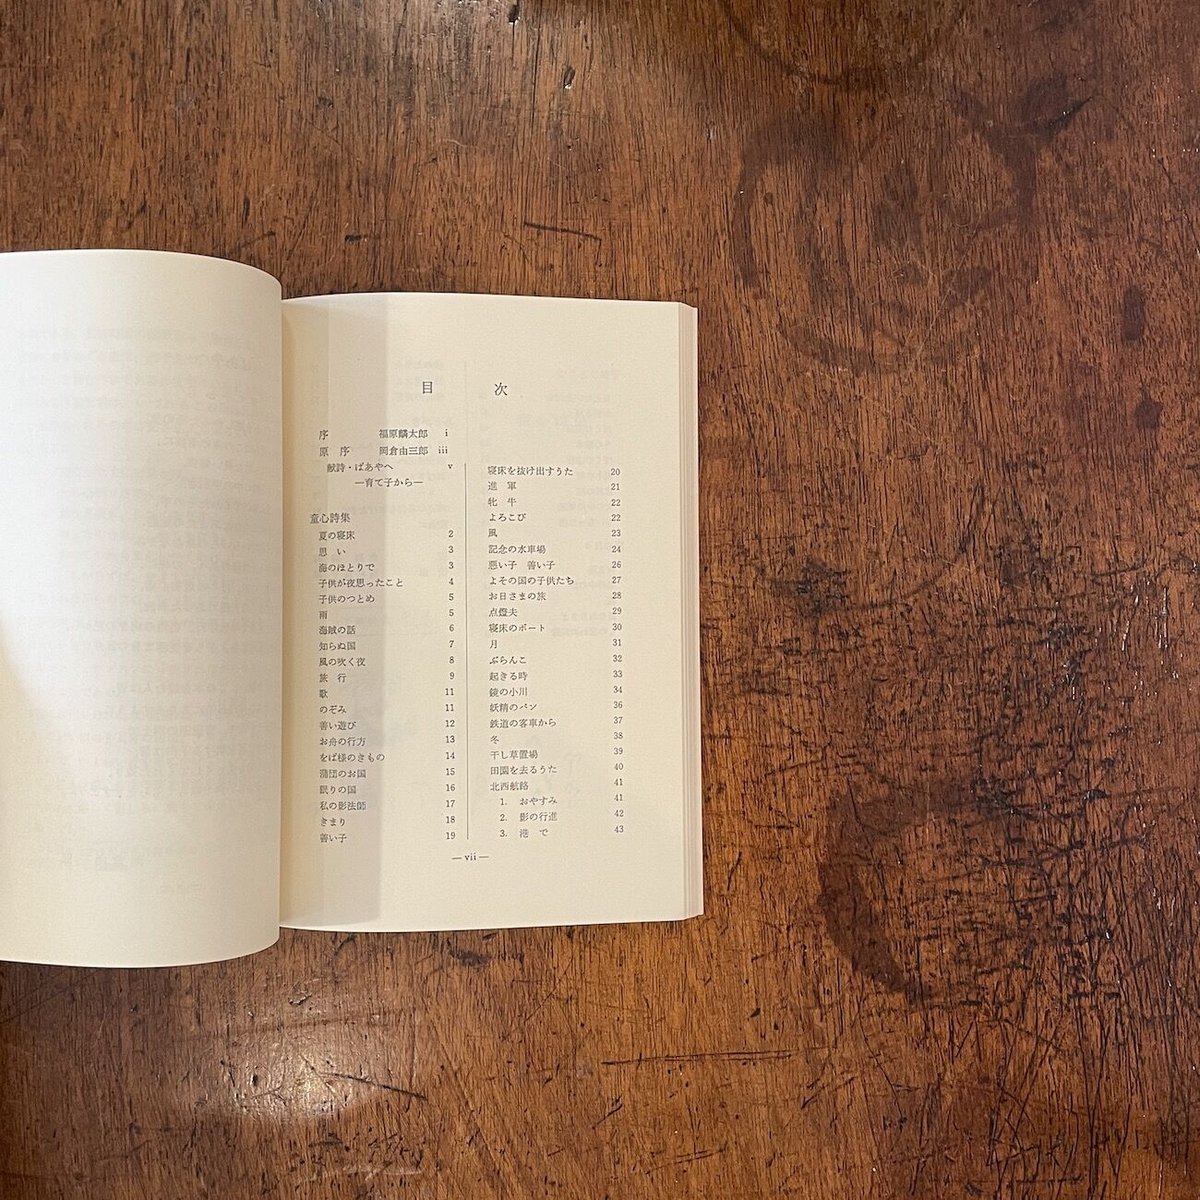 目 次
序 福原麟太郎 i
原序 岡倉由三郎 iii
献詩・ばあやへ v
―育て子から―
童心詩集
夏の寝床 2
思い 3
海のほとりで 3
子供が夜思ったこと 4
子供のつとめ 5
雨 5
海賊の話 6
知らぬ国 7
風の吹く夜 8
旅行 9
歌 11
のぞみ 11
善い遊び 12
お舟の行方 13
をば様のきもの 14
蒲団のお国 15
眠りの国 16
私の影法師 17
きまり 18
善い子 19
寝床を抜け出すうた 20
進軍 21
牝牛 22
よろこび 22
風 23
記念の水車場 24
悪い子 善い子 26
よその国の子供たち 27
お日さまの旅 28
点燈夫 29
寝床のボート 30
月 31
ぶらんこ 32
起きる時 33
鏡の小川 34
妖精のパン 36
鉄道の客車から 37
冬 38
干し草置場 39
田園を去るうた 40
北西航路 41
1. おやすみ 41
2. 影の行進 42
3. 港で 43
―vii―